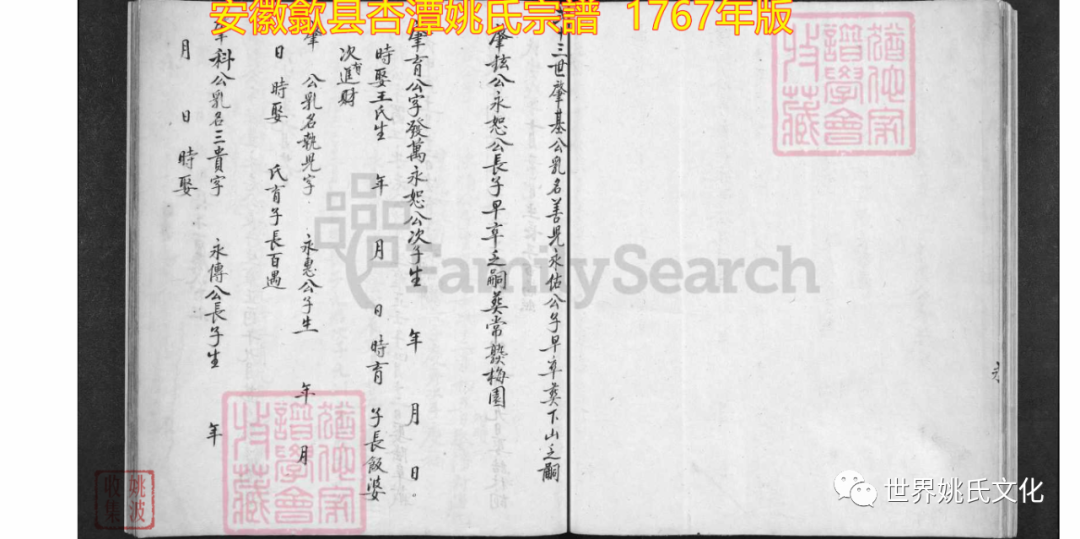 安徽歙县杏潭姚氏宗譜 1767年版
十三世肇基公乳名善兒永佑公子早卒葵下山乏嗣
肇抎公永恕公長子早卒乏嗣葵常熟梅園
肇育公字發萬永恕公次子生 年 月 日
時娶王氏生 年 月 日 時育 子長飯婆
次進財
肇 公乳名執兒字 永惠公子生 年 月
日 時娶 氏育子長百遇
科公乳名三貴字 永傳公長子生 年
月 日 時娶
FamilySearch
猶他家譜學會收藏
猶他家譜學會收藏
姚波收集
世界姚氏文化